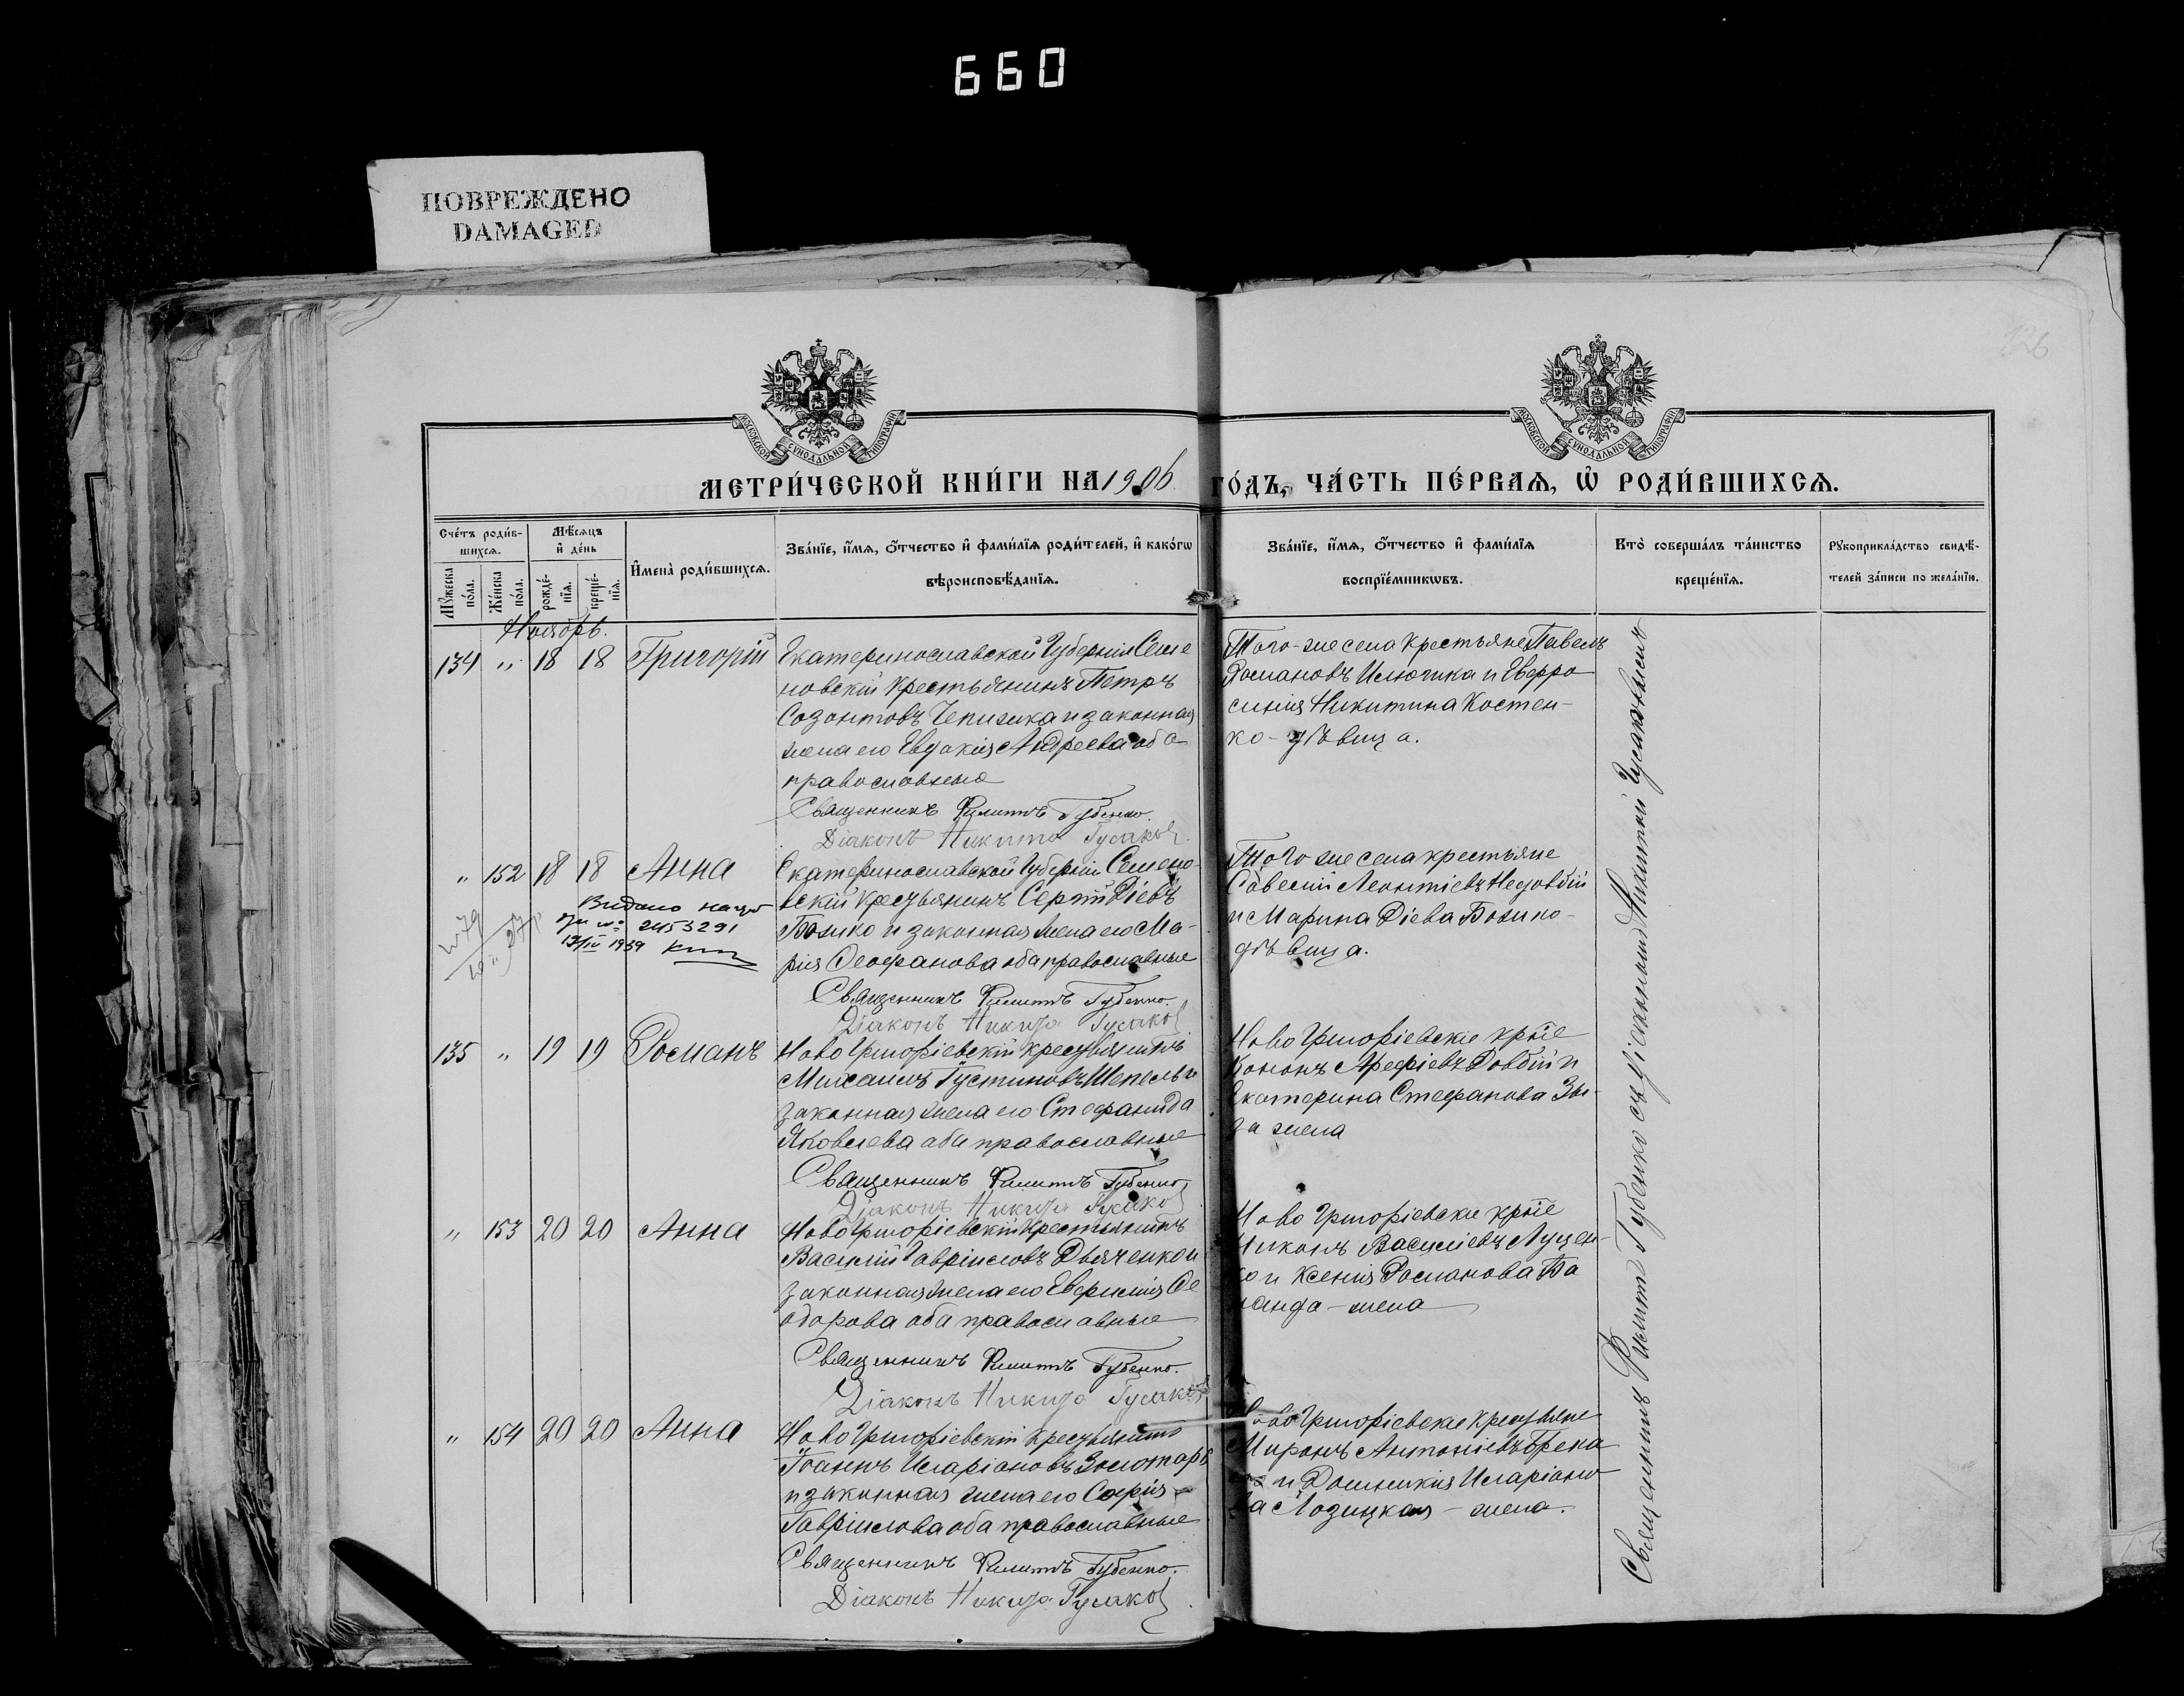 660
ПОВРЕЖДЕНО
DAMAGED
126
МОСКОВСКОЙ СѴНОДАЛЬНОЙ ТИПОГРАФІИ
МОСКОВСКОЙ СѴНОДАЛЬНОЙ ТИПОГРАФІИ
МЕТРИ́ЧЕСКОЙ КНИ́ГИ НА 1906 ГО́ДЪ, ЧА́СТЬ ПЕ́РВАѦ, Ѡ҆ РОДИ́ВШИХСѦ.
Сче́тъ роди́в-
шихсѧ.
Мꙋ́жеска по́ла.
Же́нска по́ла.
Мѣ́сѧцъ
и҆ де́нь
рожде́-
нїѧ.
креще́-
нїѧ.
И҆мена̀ роди́вшихсѧ.
Зва́нїе, и҆́мѧ, ѻ҆́тчество и҆ фами́лїѧ роди́телей, и҆ како́гѡ
вѣроисповѣ́данїѧ.
Зва́нїе, и҆́мѧ, ѻ҆́тчество и҆ фами́лїѧ
воспрїе́мникѡвъ.
Кто̀ соверша́лъ та́инство
креще́нїѧ.
Рꙋкоприкла́дство свидѣ́-
телей за́писи по жела́нїю.
Ноябрь.
134 " 18 18 Григорій
Екатеринославской Губерніи Семе
новскій крестьянинъ Петръ
Созонтовъ Чепижка и законная
жена его Евдокія Андреева оба
православные
Священникъ Филиппъ Губенко.
Діаконъ Никита Гусаковъ.
Того-же села крестьяне Павелъ
Романовъ и Евфро
синія Никитина Костен-
ко - дѣвица.
" 152 18 18 Анна
Екатеринославской Губерніи Семено-
вскій крестьянинъ Сергій Діевъ
Божко и законная жена его Ма-
рія Феофанова оба православные
Священникъ Филиппъ Губенко.
Діаконъ Никита Гусаковъ
Видано
2453291
1939
Того же села крестьяне
Савелій Леонтіевъ
и Марина Діева Божко-
дѣвица.
135 " 19 19 Романъ
Новогригоріевскій крестьянинъ
Михаилъ Іустиновъ Шепель и
законная жена его Стефанида
Яковлева оба православные
Священникъ Филиппъ Губенко
Діаконъ Никита Гусаковъ
Новогригоріевскіе кр-не
Кононъ Арефіевъ Довбій и
Екатерина Стефанова Зы-
за жена
" 153 20 20 Анна
Новогригоріевскій крестьянинъ
Василій Гавріиловъ Дьяченко и
законная жена его Евфимія Фе
одорова оба православные
Священникъ Филиппъ Губенко.
Діаконъ Никита Гусаковъ
Новогригоріевскіе кр-не
Никонъ Василіевъ Луцен-
ко и Ксенія Романова Ба
ланда - жена
" 154 20 20 Анна
Новогригоріевскій крестьянинъ
Іоаннъ Иларіоновъ Золотарь
и законная жена его Софія
Гавріилова оба православные
Священникъ Филиппъ Губенко.
Діаконъ Никита Гусаковъ.
Новогригоріевскіе крестьяне
Миронъ Антоніевъ
и Домникія Иларіоно
ва Лозицкая - жена.
Священникъ Филиппъ Губенко съ діакономъ Никитой Гусаковымъ